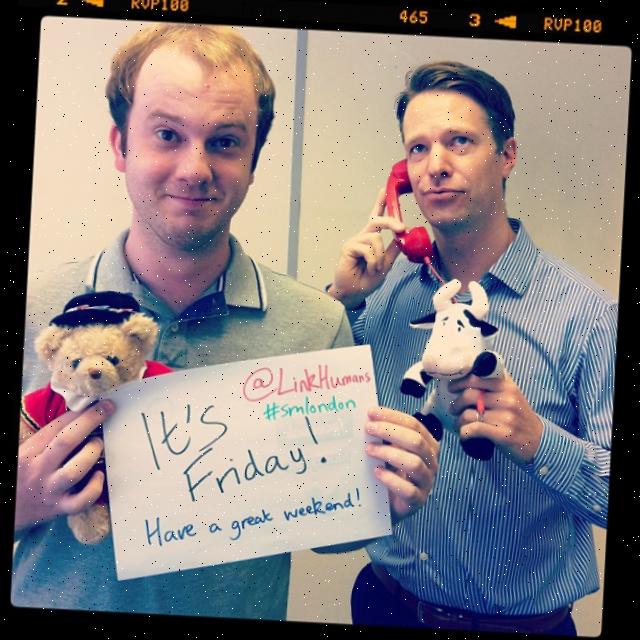 2 RVP100 465 3 RVP100
@LinkHumans
#smlondon
It's
Friday!
Have a great weekend!